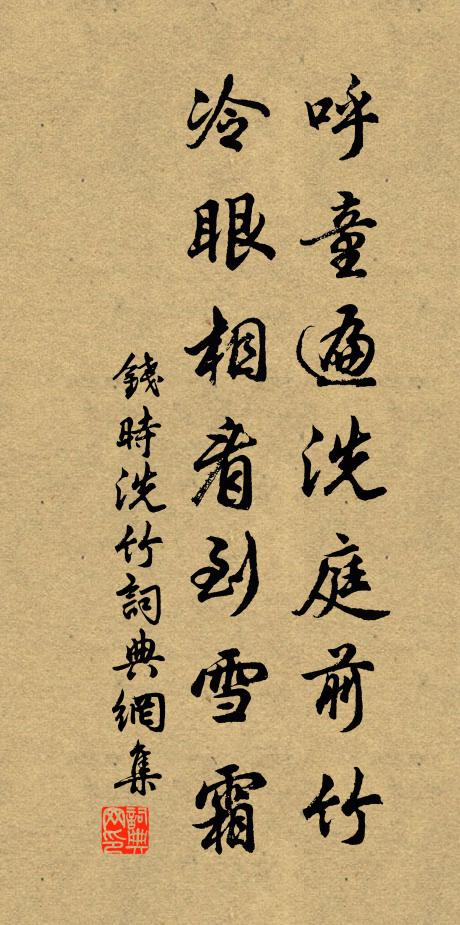 呼童遍洗庭前竹
冷眼相看到雪霜
錢時洗竹詞典網集
詞典网印